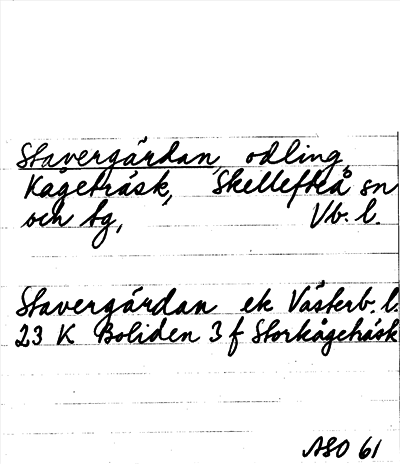 Stavergårdan, odling,
Kågeträsk, Skellefteå sn
och tg, Vb. l.
Stavergårdan ek Västerb. l.
23 K Boliden 3 f Storkågeträsk
ASO 61